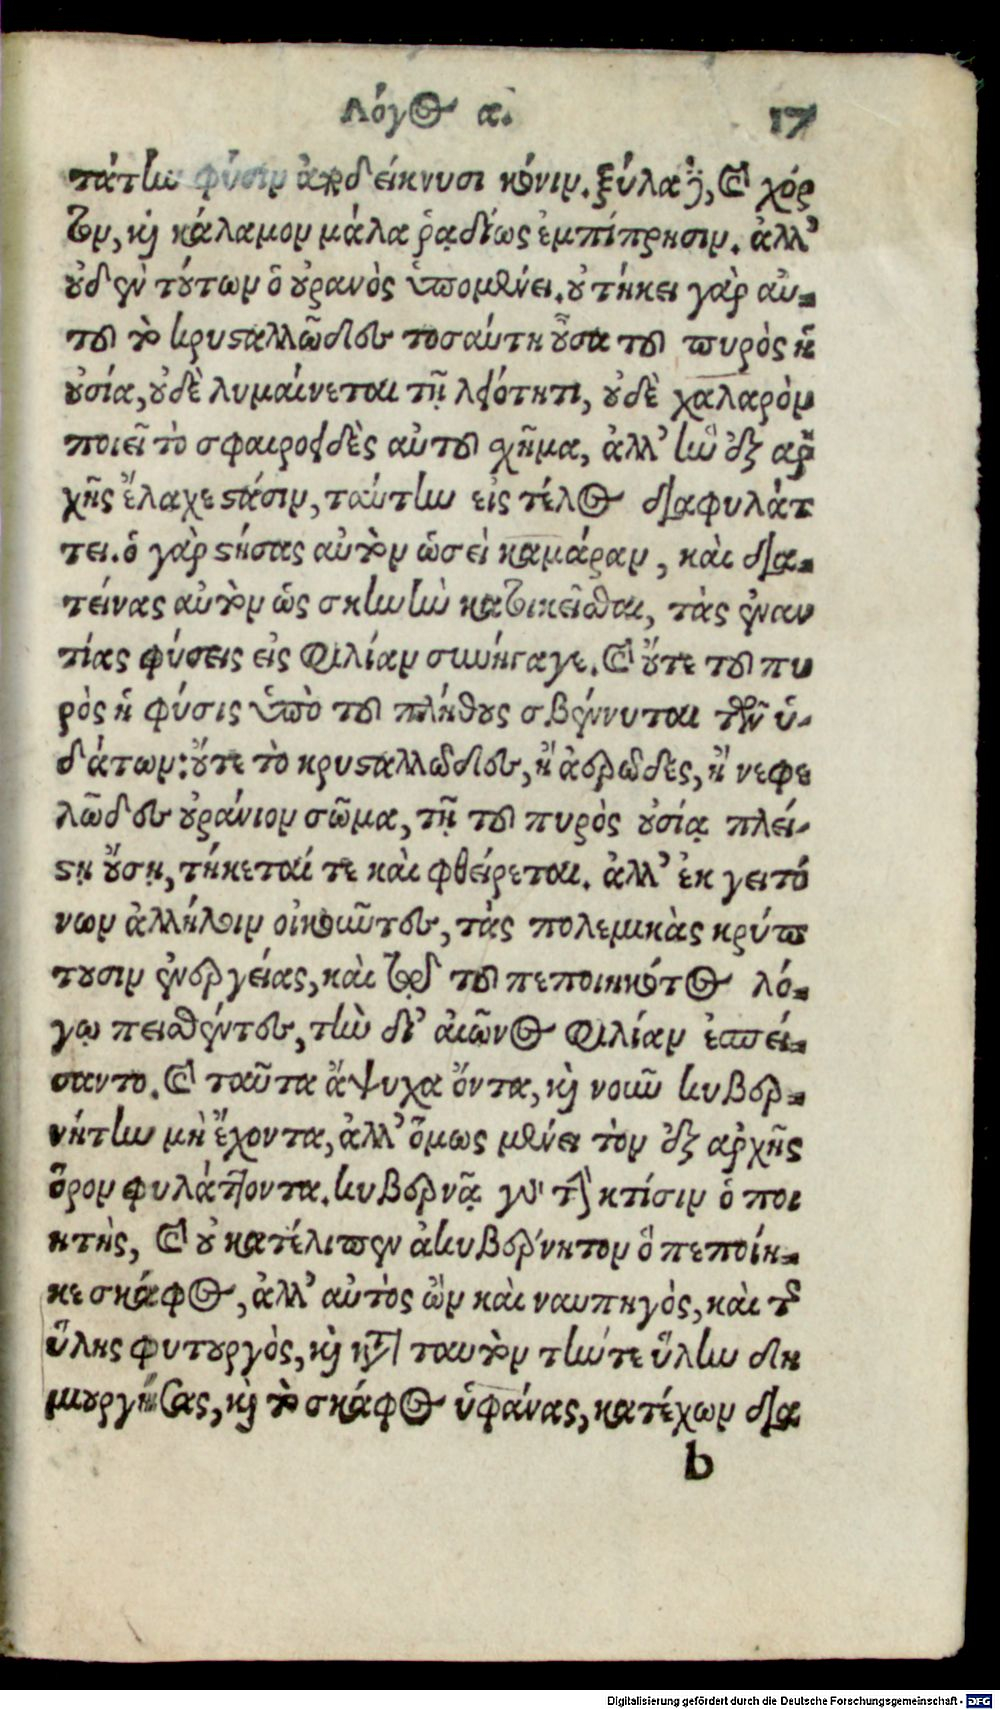 Λόγος α. 17
τάτην φύσιν ἀποδείκνυσι κόνιν. ξύλα δὲ, καὶ χόρ
τον, καὶ κάλαμον μάλα ῥᾳδίως ἐμπίπρησιν. ἀλλ'
οὐδὲν τούτων ὁ οὐρανὸς ὑπομένει. οὐ τήκει γὰρ αὐ-
τοῦ τὸ κρυσταλλῶδες τοσαύτη οὖσα τοῦ πυρὸς ἡ
οὐσία, οὐδὲ λυμαίνεται τῇ λειότητι, οὐδὲ χαλαρὸν
ποιεῖ τὸ σφαιροειδὲς αὐτοῦ σχῆμα, ἀλλ' ἣν ἐξ ἀρ
χῆς ἔλαχε στάσιν, ταύτην εἰς τέλος διαφυλάτ
τει. ὁ γὰρ στήσας αὐτὸν ὡσεὶ καμάραν, καὶ δια-
τείνας αὐτὸν ὡς σκηνὴν κατοικεῖσθαι, τὰς ἐναν
τίας φύσεις εἰς φιλίαν συνήγαγε. καὶ οὔτε τοῦ πυ
ρὸς ἡ φύσις ὑπὸ τοῦ πλήθους σβέννυται τῶν ὑ-
δάτων: οὔτε τὸ κρυσταλλῶδες, ἢ ἀερῶδες, ἢ νεφε
λῶδες οὐράνιον σῶμα, τῇ τοῦ πυρὸς οὐσίᾳ πλεί-
στῃ οὔσῃ, τήκεταί τε καὶ φθείρεται. ἀλλ' ἐκ γειτό
νων ἀλλήλοιν οἰκοῦντες, τὰς πολεμικὰς κρύπ
τουσιν ἐνεργείας, καὶ τῷ τοῦ πεποιηκότος λό-
γῳ πεισθέντες, τὴν δι' αἰῶνος φιλίαν ἐσπεί-
σαντο. καὶ ταῦτα ἄψυχα ὄντα, καὶ νοῦν κυβερ-
νήτην μὴ ἔχοντα, ἀλλ' ὅμως μένει τὸν ἐξ ἀρχῆς
ὅρον φυλάττοντα. κυβερνᾷ γὰρ τὴν κτίσιν ὁ ποι
ητὴς, καὶ οὐ κατέλιπεν ἀκυβέρνητον ὃ πεποίη-
κε σκάφος, ἀλλ' αὐτὸς ὢν καὶ ναυπηγὸς, καὶ τῆς
ὕλης φυτουργὸς, καὶ κατὰ ταυτὸν τήν τε ὕλην δη
μιουργήσας, καὶ τὸ σκάφος ὑφάνας, κατέχων δια
b
Digitalisierung gefördert durch die Deutsche Forschungsgemeinschaft - DFG